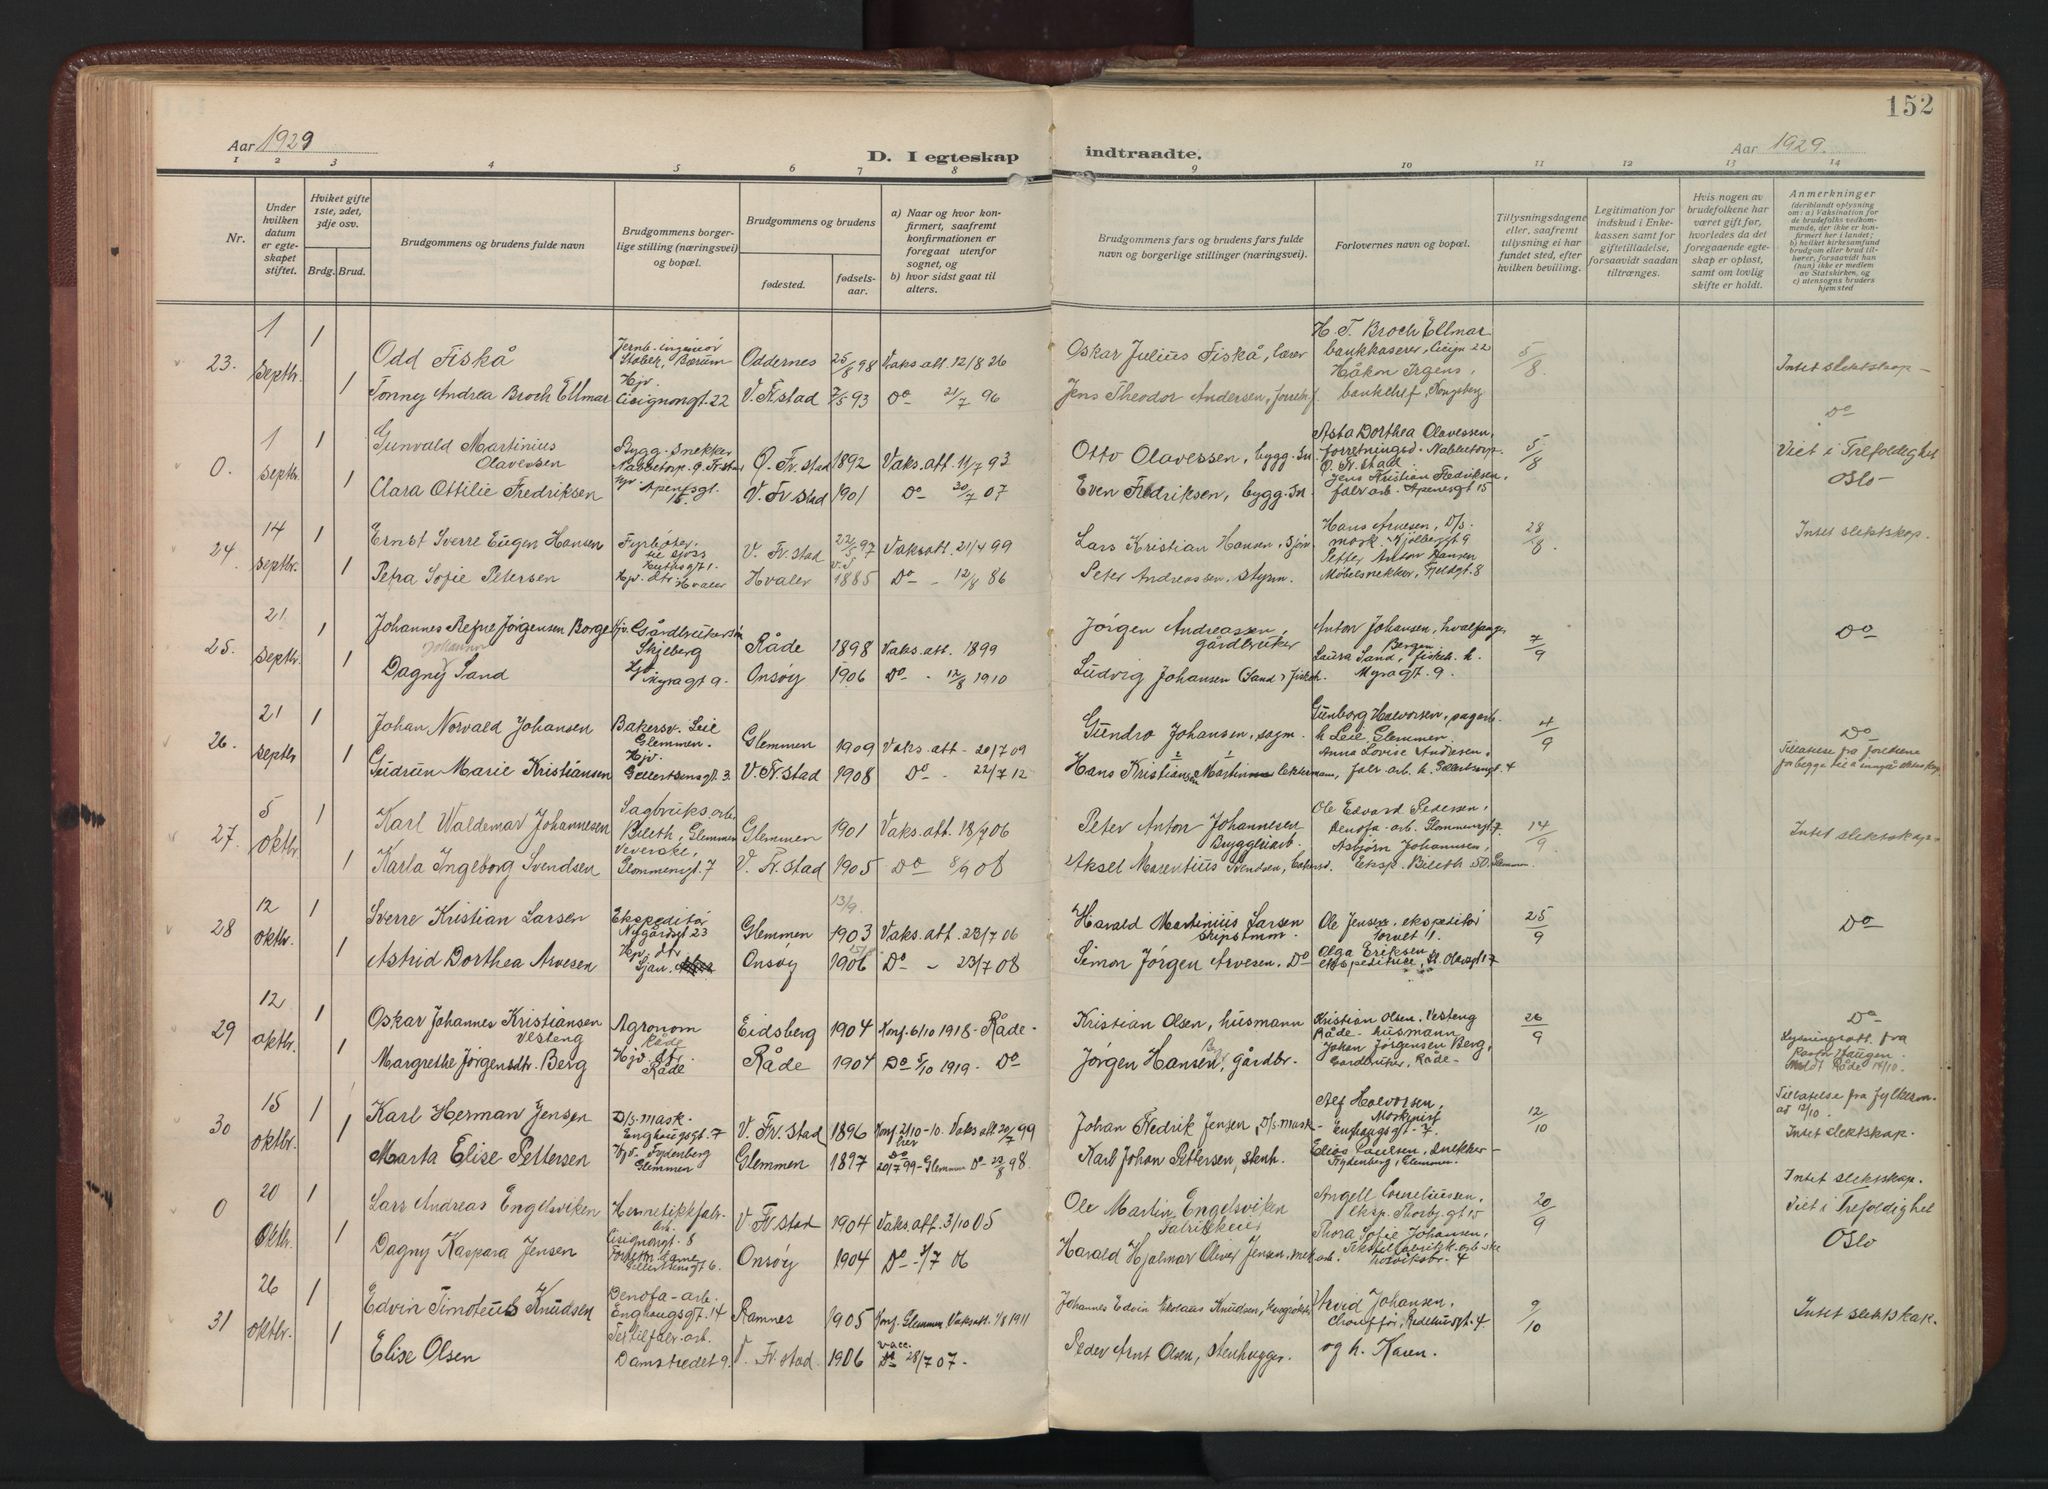 152
Aar 1929
D. I egteskap
indtraadte.
Aar 1929.
1 2 3 4 5 6 7 8 9 10 11 12 13 14
Nr.
Under hvilken datum er egteskapet stiftet.
Hvilket gifte 1ste, 2det, 3dje osv.
Brdg. Brud.
Brudgommens og brudens fulde navn
Brudgommens borgerlige stilling (næringsvei) og bopæl.
Brudgommens og brudens
fødested.
fødselsaar.
a) Naar og hvor konfirmert, saafremt konfirmationen er foregaat utenfor sognet, og
b) hvor sidst gaat til alters.
Brudgommens fars og brudens fars fulde navn og borgerlige stillinger (næringsvei).
Forlovernes navn og bopæl.
Tillysningsdagene eller, saafremt tillysning ei har fundet sted, efter hvilken bevilling.
Legitimation for indskud i Enkekassen samt for giftetilladelse, forsaavidt saadan tiltrænges.
Hvis nogen av brudefolkene har været gift før, hvorledes da det foregaaende egteskap er opløst, samt om lovlig skifte er holdt.
Anmerkninger
(deriblandt oplysning om: a) Vaksination for de brudefolks vedkommende, der ikke er konfirmert her i landet; b) hvilket kirkesamfund brudgom eller brud tilhører, forsaavidt han (hun) ikke er medlem av Statskirken, og c) utensogns bruders hjemsted
23. 1 septbr. 1
Odd Fiskå
Jernb. ingeniør Stabek, Bærum
Oddernes 25/8 98 Vaks. att. 12/8 26
Oskar Julius Fiskå, lærer
H. T. Broch Ellmar bankkaserer, Cicign 22
5/8
Intet slektskap -
1 Tonny Andrea Broch Ellmar
Hjv. Cicignongt. 22
V. Fr.stad 7/5 93 Do 21/7 96
Jens Theodor Andersen,
Håkon Irgens, bankchef, Kongsberg
Do
0. 1 septbr. 1
Gunvald Martinius Olavessen
Bygg. snekker Nabbetorp. Ø. Fr.stad
Ø. Fr.stad 1892 Vaks. att. 11/7 93
Otto Olavessen, bygg. sn.
Asta Dorthea Olavessen, forretningsd. Nabbetorp. Ø. Fr. stad
5/8
Viet i Trefoldighet
1 Clara Ottilie Fredriksen
Hjv. Apenesgt. 15.
V. Fr stad 1901 Do 30/7 07
Even Fredriksen, bygg. sn.
Jens Kristian Fredriksen, fabr arb. Apenesgt 15
Oslo -
24 14 septbr. 1
Ernst Sverre Eugen Hansen
Fyrbøter til sjøss
V. Fr. stad 22/5 97 Vaks att 21/4 99
Lars Kristian Hansen, sjøm
Hans Arvesen, D/s. mask. Kjølbergt 9
28/8
Intet slektskap.
1 Petra Sofie Petersen
Hjv. dtr. Hvaler
Hvaler 1885 Do - 12/8 86
Peter Andreassen, styrm.
Petter Anton Hansen Møbelsnekker, Fjeldgt. 8
25. 21 septbr. 1
Johannes Refne Jørgensen Borge
Hjv. Gårdbrukersøn Skjeberg
Råde 1898 Vaks. att. 1899
Jørgen Andreassen, gårdbruker
Anton Johansen, hvalfang. Bergen
7/9
Do
1 Dagny Johanne Sand
Hjv. Myragt 9.
Onsøy 1906 Do - 12/8 1910
Ludvig Johansen Sand, fiskeh.
Laura Sand, fiskeh. h. Myragt. 9.
26. 21 septbr 1
Johan Norvald Johansen
Bakersv. Leie Glemmen.
Glemmen 1909 Vaks. att. - 20/7 09
Gundro Johansen, sagm.
Gunborg Halvorsen, sagarb. h Leie, Glemmen
4/9
Do
Tillatelse fra foreldrene for begge til å inngå ekteskap
1 Gudrun Marie Kristiansen
Hjv. Gellertsensgt. 3
V. Fr.stad 1908 Do - 22/7 12
Hans Kristiansen
Anna Lovise Andersen, fabr. arb. h. Gellertsengt 4
27. 5 oktbr. 1
Karl Waldemar Johannesen
Sagbruks. arb. Bileth, Glemmen
Glemmen 1901 Vaks. att. 18/7 06
Peter Anton Johannesen Bryggeriarb.
Ole Edvard Pedersen, Denofa-arb. Glommengt. 7.
14/9
Intet slektskap -
1 Karla Ingeborg Svendsen
Veverske, Glommengt. 7
V. Fr. stad 1905 Do 8/9 08
Aksel Marentius Svendsen,
Asbjørn Johannesen, Eksp. Bileth 50. Glemmen
28 12 oktbr. 1
Sverre Kristian Larsen
Ekspeditør Nygårdsgt 23
Glemmen 13/9. 1903 Vaks. att. 23/7 06
Harald Martinius Larsen skipstmm.
Ole Jensen, ekspeditør Torvet 11.
25/9
Do
1 Astrid Dorthea Arvesen
Hjv. dtr
Onsøy 1906 Do - 23/7 08
Simon Jørgen Arvesen. Do
Olga Eriksen, ekspeditrice, St. Olavsgt 17
29 12 oktbr. 1
Oskar Johannes Kristiansen Vesteng
Agronom Råde
Eidsberg 1904 Konf. 6/10 1918 - Råde -
Kristian Olsen, husmann
Kristian Olsen, Vesteng Råde - husmann
26/9
Do
Lysningsatt. fra Pastor Haugen. Råde 14/10
1 Margrethe Jørgensdtr. Berg
Hjv. dtr. Råde
Råde 1904 Do 5/10 1919. Do
Jørgen Hansen Berg, Gårdbr.
Johan Jørgensen Berg, Gardbruker, Råde -
30 15 oktbr. 1
Karl Herman Jensen
D/s. mask. Enghaugsgt. 7
V. Fr. stad 1896 Konf. 2/10-10. Vaks att 20/7 99 her
Johan Fredrik Jensen, D/s. mask -
Alf Halvorsen, Maskinist Enghaugsgt. 7.
12/10
Tillatelse fra fylkesm. av 12/10.
Intet slektskap.
1 Marta Elise Pettersen
Hjv. Frydenberg Glemmen
Glemmen 1897 Do 20/7 99 - Glemmen Do - 23/8 98
Karl Johan Pettersen, stenh.
Elias Paulsen, snekker - Frydenberg, Glemmen.
0 20 oktbr. 1
Lars Andreas Engelsviken
Hermetikkfabr. arb. Cicignongt. 8
V. Fr stad 1904 Vaks. att. 3/10 05
Ole Martin Engelsviken fabrikkeier
Angell Corneliussen, eksp. Thorbj.gt 15
20/9
Intet slektskap.
Viet i Trefoldighet
1 Dagny Kaspara Jensen
Gellertsensgt 6.
Onsøy 1904 Do - 3/7 06
Harald Hjalmar Oliver Jensen, mek arb.
Thora Sofie Johansen,
Oslo
31 26 oktbr. 1
Edvin Timoteus Knudsen
Denofa-arb. Enghaugsgt. 14
Ramnes 1905 Konf. Glemmen Vaks att. 1/8 1911
Johannes Edvin Nikolaus Knudsen,
Arvid Johansen, Chauffør,
9/10
Intet slektskap.
1 Elise Olsen
Textilfabr. arb. Damstredet 9.
V. Fr. stad. 1906 vacc. Do 28/7 07 -
Peder Arnt Olsen, stenhugger.
og h. Karen.